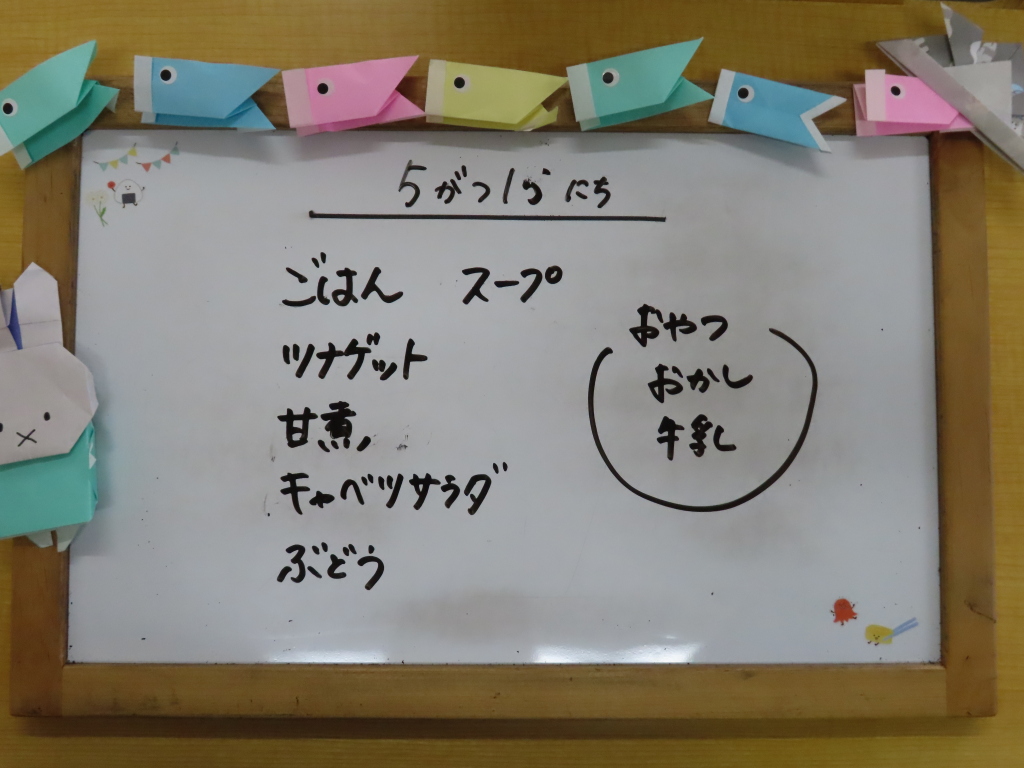 5がつ15にち
ごはん スープ
ツナゲット
甘煮
キャベツサラダ
ぶどう
おやつ
おかし
牛乳